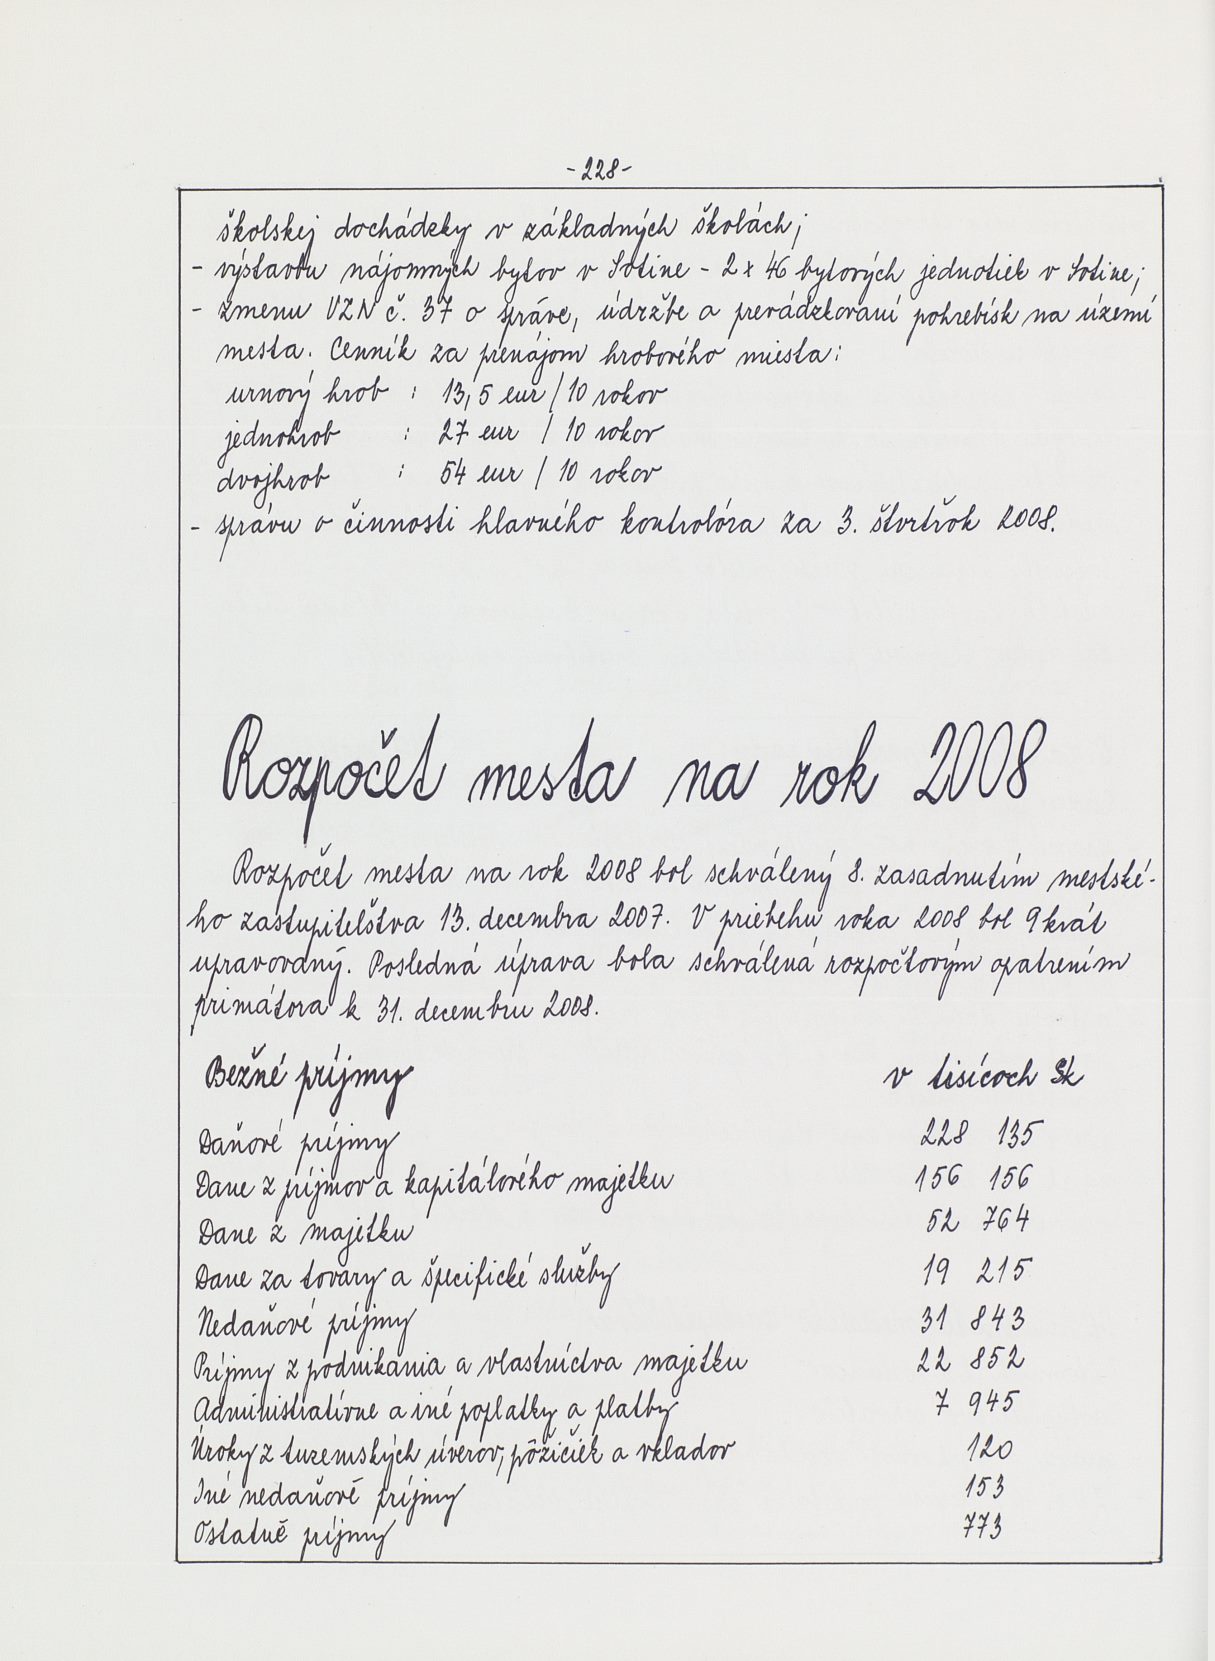 -228-
školskej dochádzky v základných školách;
- výstavbu nájomných bytov v Sotine - 2 x 46 bytových jednotiek v Sotine;
- zmenu VZN č. 37 o správe, údržbe a prevádzkovaní pohrebísk na území
mesta. Cenník za prenájom hrobového miesta:
urnový hrob : 13,5 eur / 10 rokov
jednohrob : 27 eur / 10 rokov
dvojhrob : 54 eur / 10 rokov
- správu o činnosti hlavného kontrolóra za 3. štvrťrok 2008.
Rozpočet mesta na rok 2008
Rozpočet mesta na rok 2008 bol schválený 8. zasadnutím mestské-
ho zastupiteľstva 13. decembra 2007. V priebehu roka 2008 bol 9 krát
upravovaný. Posledná úprava bola schválená rozpočtovým opatrením
primátora k 31. decembru 2008.
Bežné príjmy v tisícoch Sk
Daňové príjmy 228 135
Dane z príjmov a kapitálového majetku 156 156
Dane z majetku 52 764
Dane za tovary a špecifické služby 19 215
Nedaňové príjmy 31 843
Príjmy z podnikania a vlastníctva majetku 22 852
Administratívne a iné poplatky a platby 7 945
Úroky z tuzemských úverov, pôžičiek a vkladov 120
Iné nedaňové príjmy 153
Ostatné príjmy 773